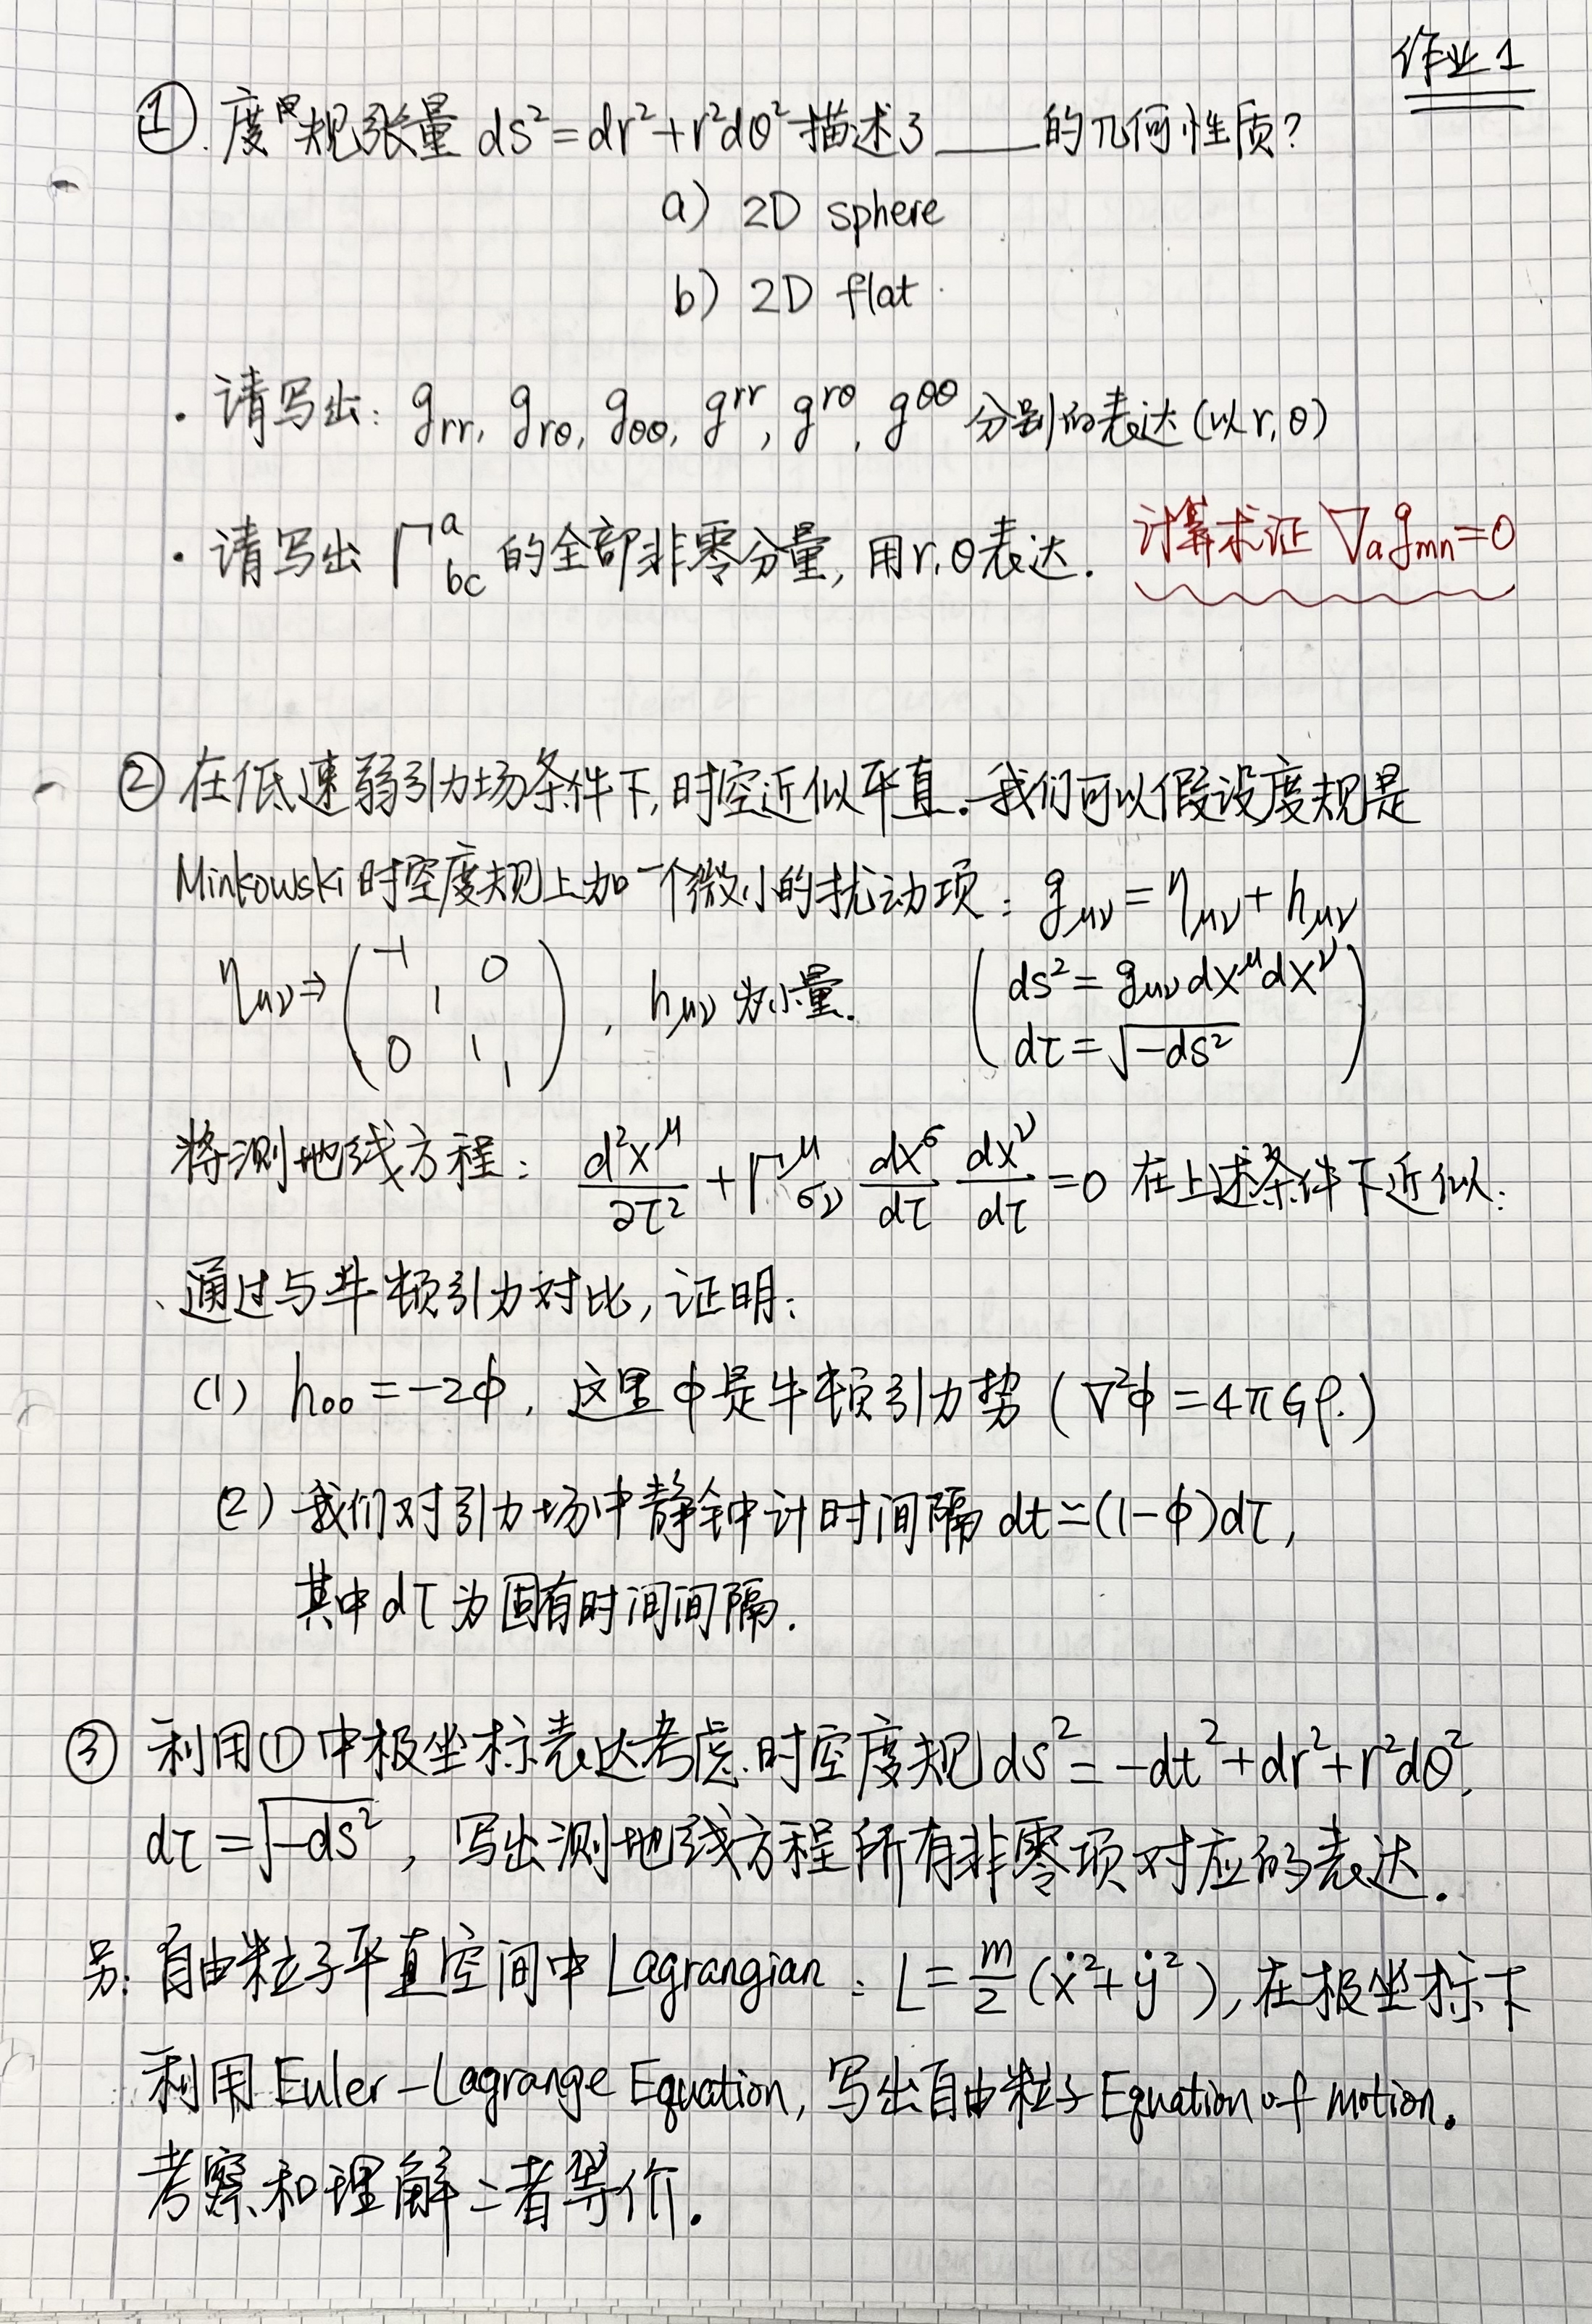 作业1
①. 度规张量 ds²=dr²+r²dθ² 描述了____的几何性质?
a) 2D sphere
b) 2D flat
· 请写出: g_rr, g_rθ, g_θθ, g^rr, g^rθ, g^θθ 分别的表达(以r,θ)
· 请写出 Γ^a_bc 的全部非零分量, 用r,θ表达. 计算求证 ∇_a g_mn=0
② 在低速弱引力场条件下, 时空近似平直. 我们可以假设度规是
Minkowski 时空度规上加一个微小的扰动项: g_μν = η_μν + h_μν
η_μν ⇒ (-1 0 1 0 1 1), h_μν 为小量. (ds² = g_μν dx^μ dx^ν
dτ = √-ds²)
将测地线方程: d²x^μ/∂τ² + Γ^μ_σν dx^σ/dτ dx^ν/dτ =0 在上述条件下近似:
、通过与牛顿引力对比, 证明:
(1) h₀₀ = -2φ, 这里φ是牛顿引力势 (∇²φ = 4πGρ.)
(2) 我们对引力场中静钟计时间隔 dt≃(1-φ)dτ,
其中 dτ 为固有时间间隔.
③ 利用①中极坐标表达考虑.时空度规 ds² = -dt²+dr²+r²dθ²,
dτ = √-ds², 写出测地线方程所有非零项对应的表达.
另: 自由粒子平直空间中 Lagrangian: L = m/2 (ẋ²+ẏ²), 在极坐标下
利用 Euler-Lagrange Equation, 写出自由粒子 Equation of motion.
考察和理解二者等价.